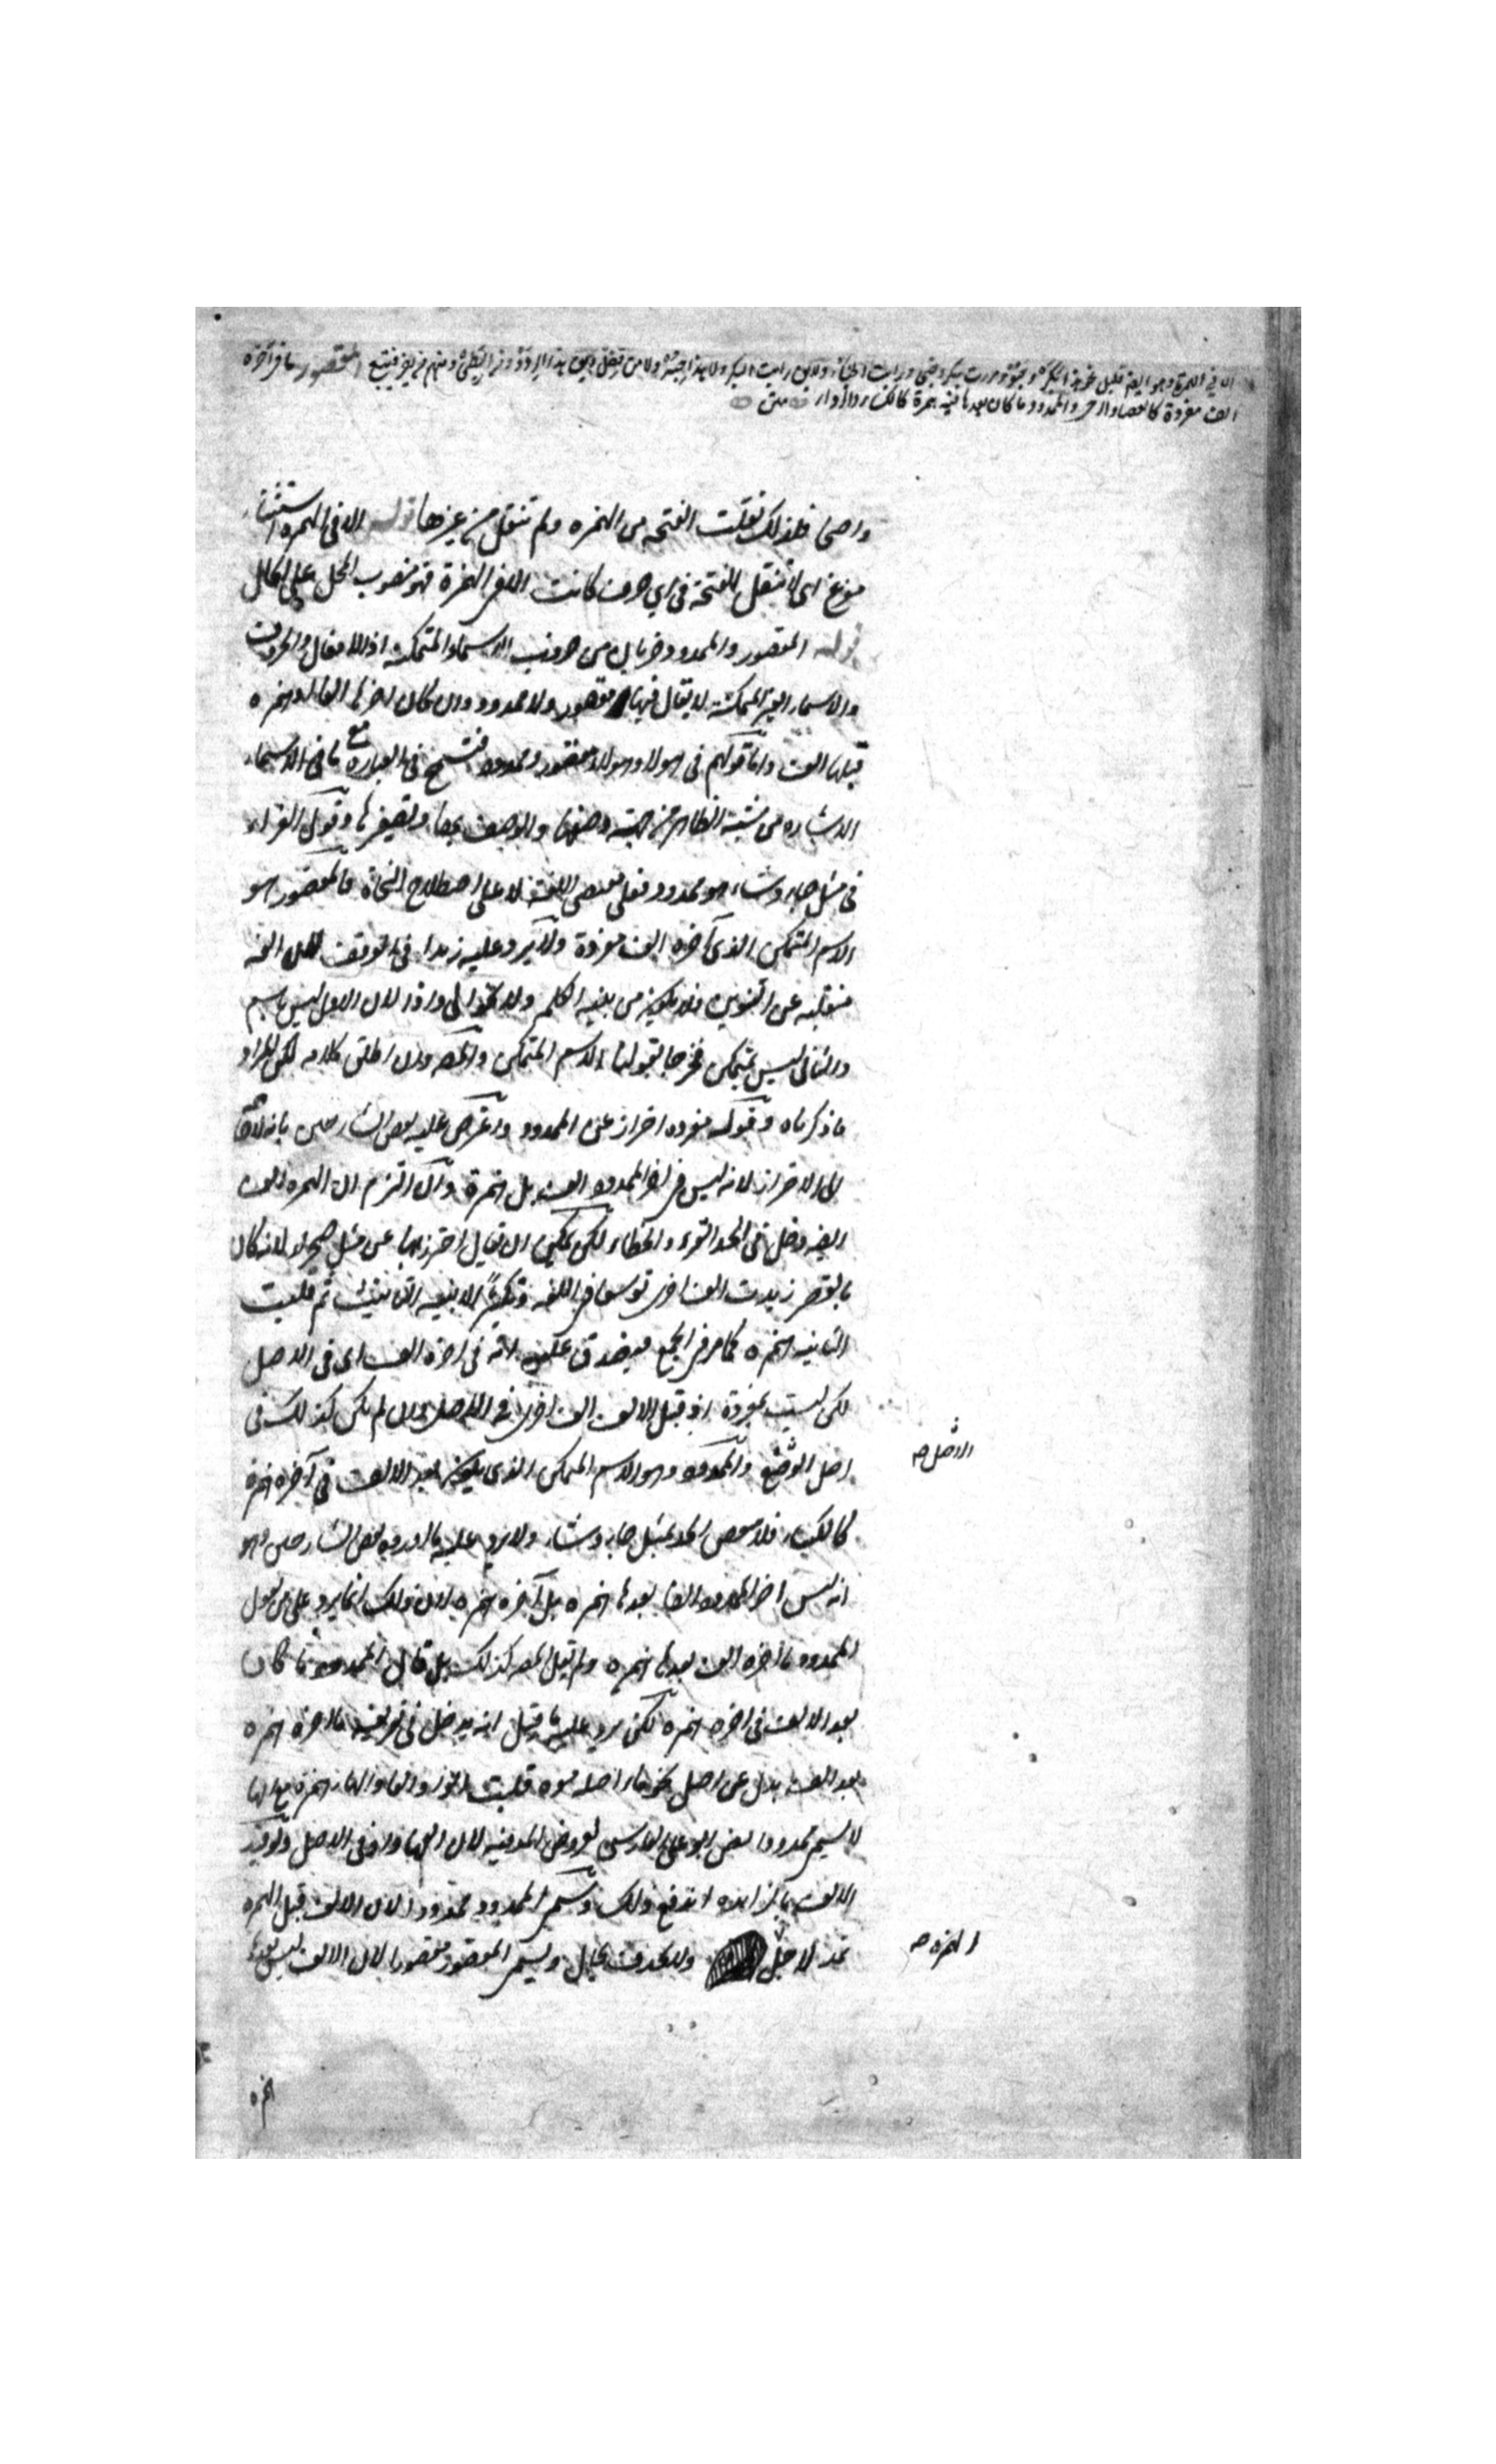 الا في الهمزة وهو ايضا قليل نحو هذا البكر وخبؤ ومررت ببكر وخبئ ورايت الخبأ ولا يقال رايت البكر ولا هذا حبر ولا من قفل ويقال هذا الردؤ ومن البطئ ومنهم من يفر فيتبع المقصور ما في آخره
الف مفردة كالعصا والرحى والممدود ما كان بعدها فيه همزة كالكساء والرداء متن
واصحا فلذلك نقلت الفتحه من الهمزه ولم تنقل من غيرها قوله الا في الهمزه استثناء
مفرغ اى لا تنقل الفتحة في اي حرف كانت الا في الهمزة فهو منصوب المحل على الحال
قوله المقصور والممدود ضربان من ضروب الاسماء المتمكنه اذ الافعال والحروف
والاسماء الغير المتمكنه لا يقال فيها مقصور ولا ممدود وان كان اخرها الفا او همزه
قبلها الف واما قولهم في هولا وهولاء مقصور وممدود فتسمح في العباره مع ما في الاسماء
الاشاره من شبه الظاهر من جهة وصفها والوصف بها وتصغيرها وقول القراء
في مثل جاء وشاء هو ممدود فعلى مقتضى اللغه لا على اصطلاح النحاة فالمقصور هو
الاسم المتمكن الذي آخره الف مفردة ولا يرد عليه زيدا في الوقف لان الفه
منقلبه عن التنوين فلا يكون من بنيه الكلم ولا نحو الى واذا لان الاول ليس باسم
والثاني ليس بمتمكن فخرجا بقولنا الاسم المتمكن والمصه وان اطلق كلامه لكن المراد
ما ذكرناه وقوله مفرده احتراز عن الممدود واعترض عليه بعض الشارحين بانه لا حاجة
الى الاحتراز لانه ليس في اخر الممدود الف بل همزة وان التزم ان الهمزه الف
ايضا دخل في الحد القرء والخطاء لكن يمكن ان يقال احترز بها عن مثل صحراء لانه كان
بالقصر زيدت الف اخرى توسعا في اللغه وتكثيرا لابنيه التانيث ثم قلبت
الثانيه همزه كما مر في الجمع فيصدق عليه انه في اخره الف اى في الاصل
لكن ليست بمفردة اذ قبل الالف الف اخرى في الاصل وان لم يكن كذلك في
اصل الوضع والممدود وهو الاسم المتمكن الذي يكون بعد الالف في آخره همزة
الاصل صح
كالكساء فلا ينتقض الحد بمثل جاء وشاء ولا يرد عليه ما اورده بعض الشارحين وهو
انه ليس اخر الممدود الفا بعدها همزه بل آخره همزه لان ذلك انما يرد على من يقول
الممدود ما اخره الف بعدها همزه ولم يقل المصه كذلك بل قال الممدود ما كان
بعد الالف في اخره همزه لكن يرد عليه ما قيل انه يدخل في تعريفه ما اخره همزه
بعد الف بدل عن اصل نحو ماء اصله موه قلبت الواو الفا والهاء همزه مع انها
لا يسمى ممدودا نص ابو على الفارسى لعروض المديه لان الفها واو في الاصل ولو قيد
الالف بالزائده اندفع ذلك وسمى الممدود ممدودا لان الالف قبل الهمزه
تمد لاجل ولا يحذف بحال ويسمى المقصور مقصورا لان الالف ليس بعدها
الهمزه صح
همزه